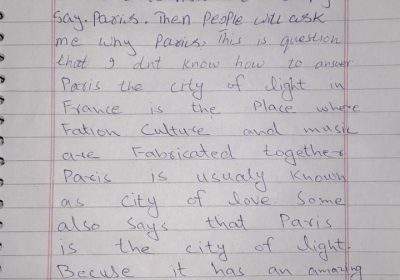 say. Paris. Then people will ask
me why Paris. This is question
that I dnt know how to answer
Paris the city of light in
France is the Place where
Fation Culture and music
are Fabricated together
Paris is usualy known
as city of love some
also says that Paris
is the city of light.
Becuse it has an amazing